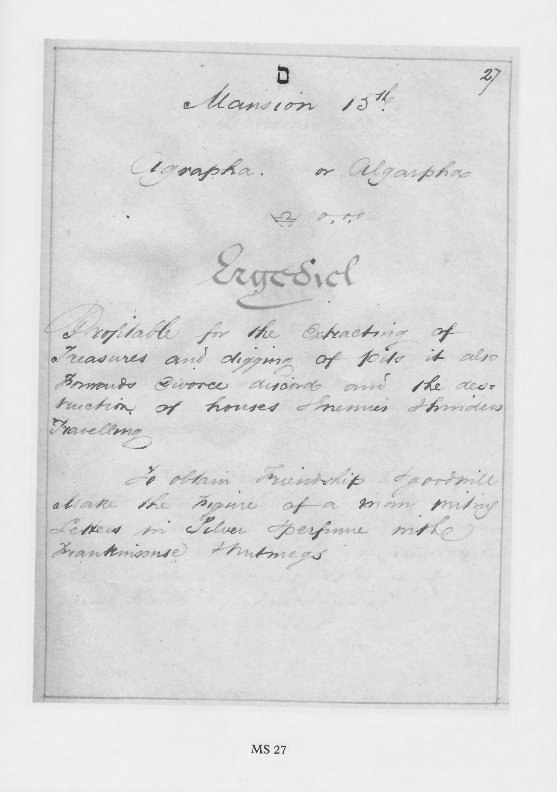 ס
27
Mansion 15th
Agrapha. or Algarpha
♎ 0.00
Ergediel
Profitable for the Extracting of
Treasures and digging of Pits it also
Forwards Divorce discord and the des=
truction of houses & Enemies & hinders
Travelling
To obtain Friendship & goodwill
Make the Figure of a man writing
Letters in Silver & perfume with
Frankinsense & Nutmegs
MS 27